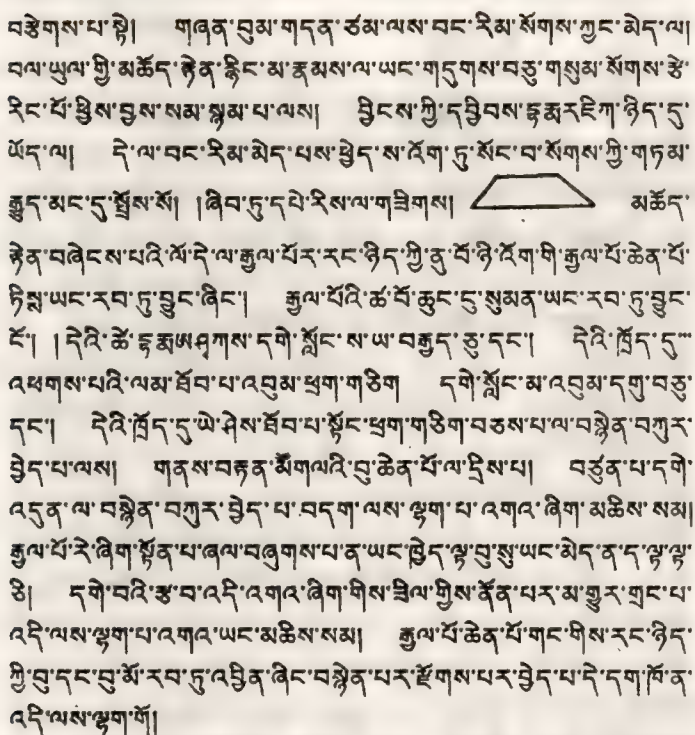 བརྩེགས་པ་སྟེ། གཞན་བུམ་གདན་ཙམ་ལས་བང་རིམ་སོགས་ཀྱང་མེད་ལ།
བལ་ཡུལ་གྱི་མཆོད་རྟེན་རྙིང་མ་རྣམས་ལ་ཡང་གདུགས་བཅུ་གསུམ་སོགས་རྩེ་
རིང་པོ་ཕྱིས་བྱས་སམ་སྙམ་པ་ལས། བྱིངས་ཀྱི་དབྱིབས་དྷརྨ་རཛིཀ་ཉིད་དུ་
ཡོད་ལ། དེ་ལ་བང་རིམ་མེད་པས་ཕྱེད་ས་འོག་ཏུ་སོང་བ་སོགས་ཀྱི་གཏམ་
རྒྱུད་མང་དུ་སྤྲོས་སོ། །ཞིབ་ཏུ་དཔེ་རིས་ལ་གཟིགས། མཆོད་
རྟེན་བཞེངས་པའི་ལོ་དེ་ལ་རྒྱལ་པོར་རང་ཉིད་ཀྱི་ནུ་བོ་ཉི་འོག་གི་རྒྱལ་པོ་ཆེན་པོ་
ཏིསྶ་ཡང་རབ་ཏུ་བྱུང་ཞིང་། རྒྱལ་པོའི་ཚ་བོ་ཆུང་དུ་སུམན་ཡང་རབ་ཏུ་བྱུང་
ངོ་། །དེའི་ཚེ་དྷརྨ་ཨཤྭཀས་དགེ་སློང་ས་ཡ་བརྒྱད་ཅུ་དང་། དེའི་ཁྲོད་དུ་
འཕགས་པའི་ལམ་ཐོབ་པ་འབུམ་ཕྲག་གཅིག དགེ་སློང་མ་འབུམ་དགུ་བཅུ་
དང་། དེའི་ཁྲོད་དུ་ཡེ་ཤེས་ཐོབ་པ་སྟོང་ཕྲག་གཅིག་བཅས་པ་ལ་བསྙེན་བཀུར་
བྱེད་པ་ལས། གནས་བརྟན་མོགལའི་བུ་ཆེན་པོ་ལ་དྲིས་པ། བཙུན་པ་དགེ་
འདུན་ལ་བསྙེན་བཀུར་བྱེད་པ་བདག་ལས་ལྷག་པ་འགའ་ཞིག་མཆིས་སམ།
རྒྱལ་པོ་རེ་ཞིག་སྟོན་པ་ཞལ་བཞུགས་པ་ན་ཡང་ཁྱེད་ལྟ་བུ་སུ་ཡང་མེད་ན་ད་ལྟ་ལྟ་
ཅི། དགེ་བའི་རྩ་བ་འདི་འགའ་ཞིག་གིས་ཟིལ་གྱིས་ནོན་པར་མ་གྱུར་གྲང་པ་
འདི་ལས་ལྷག་པ་འགའ་ཡང་མཆིས་སམ། རྒྱལ་པོ་ཆེན་པོ་གང་གིས་རང་ཉིད་
ཀྱི་བུ་དང་བུ་མོ་རབ་ཏུ་འབྱིན་ཞིང་བསྙེན་པར་རྫོགས་པར་བྱེད་པ་དེ་དག་ཁོ་ན་
འདི་ལས་ལྷག་གོ།